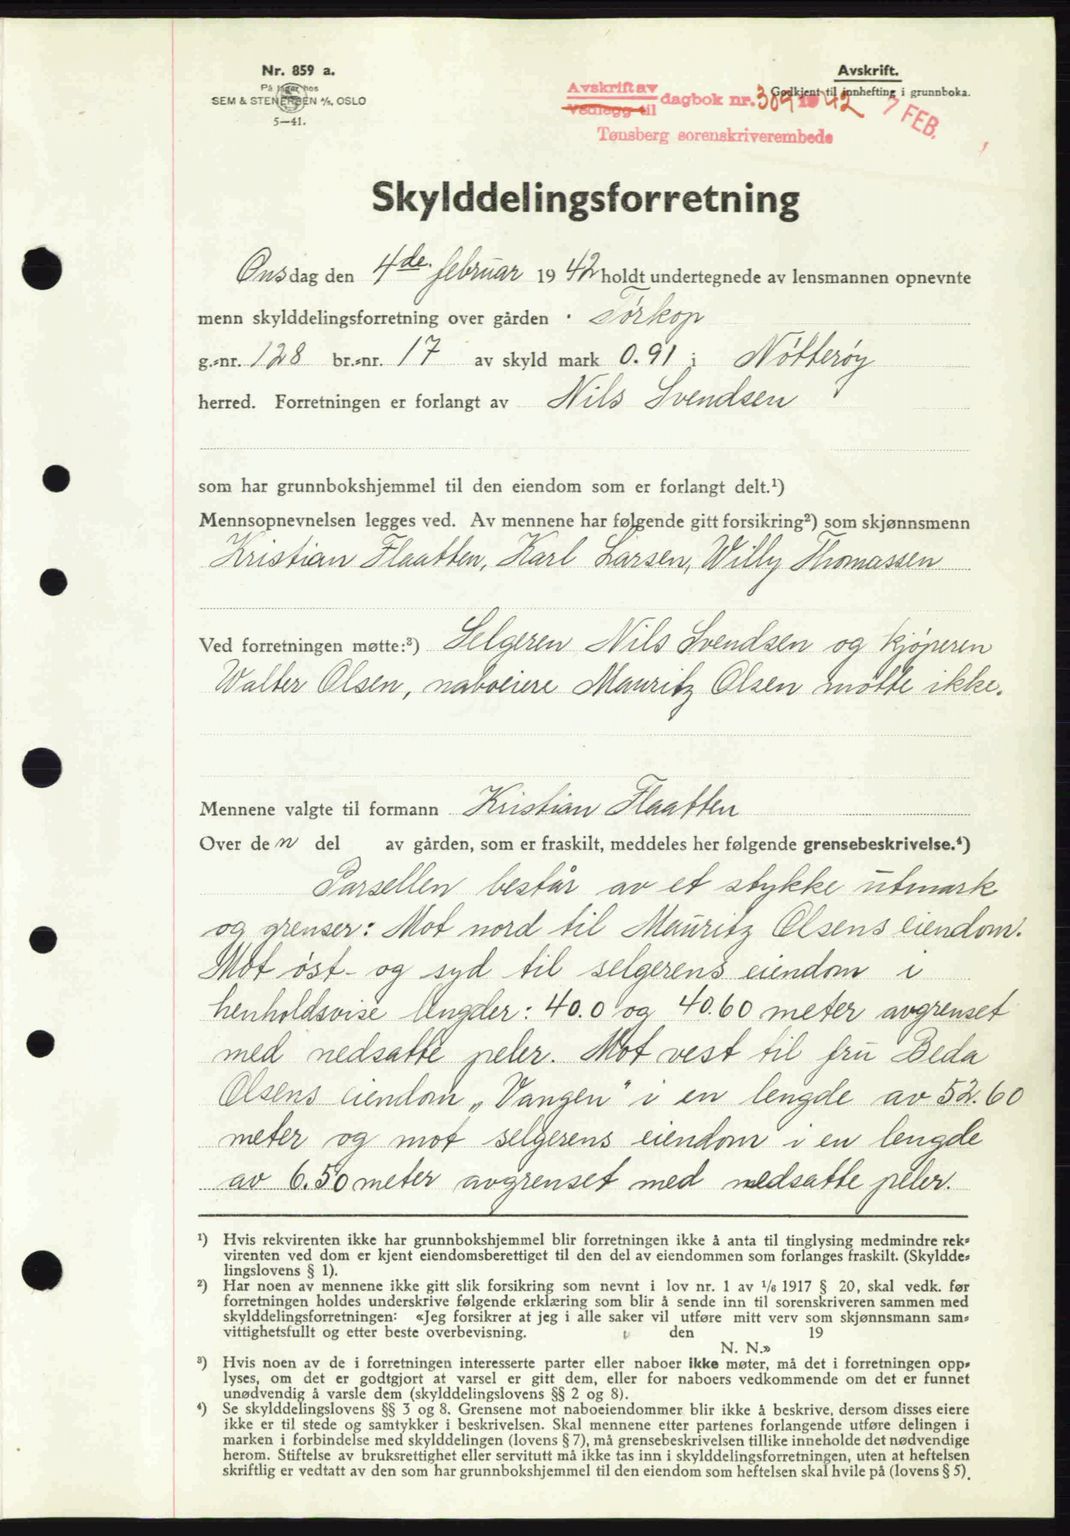 Nr. 859 a.
På lager hos
SEM & STENERSEN A/S, OSLO
5—41.
Avskrift.
Godkjent til innhefting i grunnboka.
Avskrift av
Vedlegg til
dagbok nr. 309 1942
7 FEB.
Tønsberg sorenskriverembede
Skylddelingsforretning
Onsdag den 4de. februar 1942 holdt undertegnede av lensmannen opnevnte
menn skylddelingsforretning over gården Torkop
g.-nr. 128 br.-nr. 17 av skyld mark 0.91 i Nøtterøy
herred. Forretningen er forlangt av Nils Svendsen
som har grunnbokshjemmel til den eiendom som er forlangt delt.¹)
Mennsopnevnelsen legges ved. Av mennene har følgende gitt forsikring²) som skjønnsmenn
Kristian Flaatten, Karl Larsen, Willy Thomassen
Ved forretningen møtte:³) Selgeren Nils Svendsen og kjøperen
Walter Olsen, naboeiere Mauritz Olsen møtte ikke.
Mennene valgte til formann Kristian Flaatten
Over den del av gården, som er fraskilt, meddeles her følgende grensebeskrivelse.⁴)
Parsellen består av et stykke utmark
og grenser: Mot nord til Mauritz Olsens eiendom.
Mot øst- og syd til selgerens eiendom i
henholdsvise lengder: 40.0 og 40.60 meter avgrenset
med nedsatte peler. Mot vest til fru Beda
Olsens eiendom „Vangen" i en lengde av 52.60
meter og mot selgerens eiendom i en lengde
av 6.50 meter avgrenset med nedsatte peler.
¹) Hvis rekvirenten ikke har grunnbokshjemmel blir forretningen ikke å anta til tinglysing medmindre rek-
virenten ved dom er kjent eiendomsberettiget til den del av eiendommen som forlanges fraskilt. (Skyldde-
lingslovens § 1).
²) Har noen av mennene ikke gitt slik forsikring som nevnt i lov nr. 1 av 1/6 1917 § 20, skal vedk. før
forretningen holdes underskrive følgende erklæring som blir å sende inn til sorenskriveren sammen med
skylddelingsforretningen: «Jeg forsikrer at jeg i alle saker vil utføre mitt verv som skjønnsmann sam-
vittighetsfullt og etter beste overbevisning. den 19
N. N.»
³) Hvis noen av de i forretningen interesserte parter eller naboer ikke møter, må det i forretningen opp-
lyses, om det er godtgjort at varsel er gitt dem, eller for naboers vedkommende om det er funnet
unødvendig å varsle dem (skylddelingslovens §§ 2 og 8).
⁴) Se skylddelingslovens §§ 3 og 8. Grensene mot naboeiendommer blir ikke å beskrive, dersom disses eiere
ikke er til stede og samtykker i beskrivelsen. Skal mennene etter partenes forlangende utføre delingen i
marken i forbindelse med skylddelingen (lovens § 7), må grensebeskrivelsen tillike inneholde det nødvendige
herom. Stiftelse av bruksrettighet eller servitutt må ikke tas inn i skylddelingsforretningen, uten at heftelsen
skriftlig er vedtatt av den som har grunnbokshjemmel til den eiendom som heftelsen skal hvile på (lovens § 5).